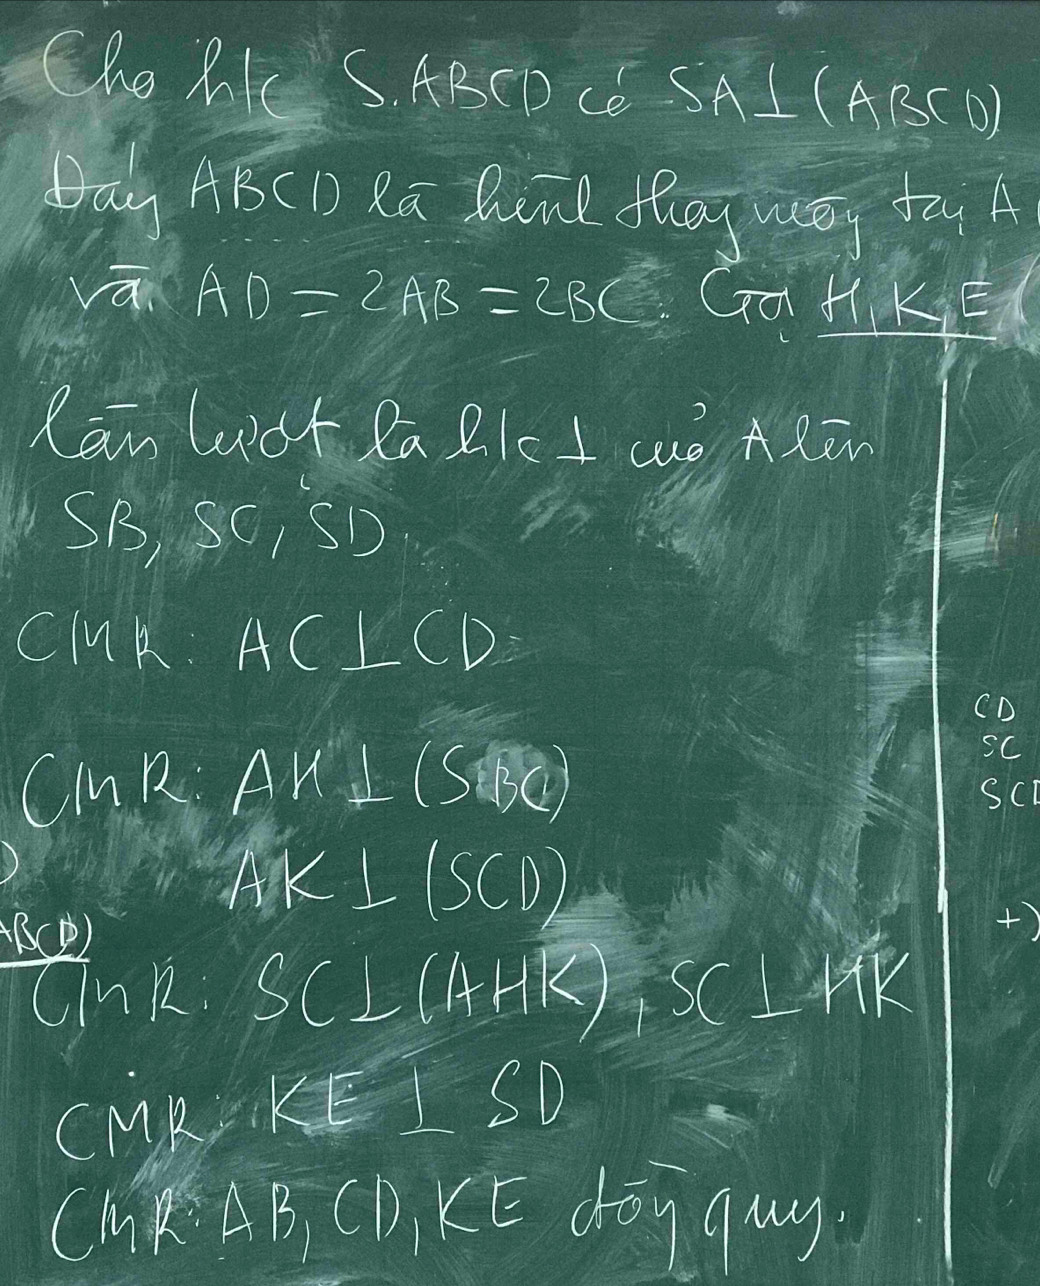 Cho h/c S.ABCD có SA⊥(ABCD)
Đáy ABCD là hình thang vuông tại A
và AD = 2AB = 2BC. Gọi H, K, E
lần lượt là h/c ⊥ của A lên
SB, SC, SD.
CMR: AC⊥CD
CD
SC
CMR: AH ⊥ (SBC)
AK ⊥ (SCD)
ABCD)
+)
CMR: SC⊥(AHK), SC ⊥ HK
CMR: KE ⊥ SD
CMR: AB, CD, KE đồng quy.